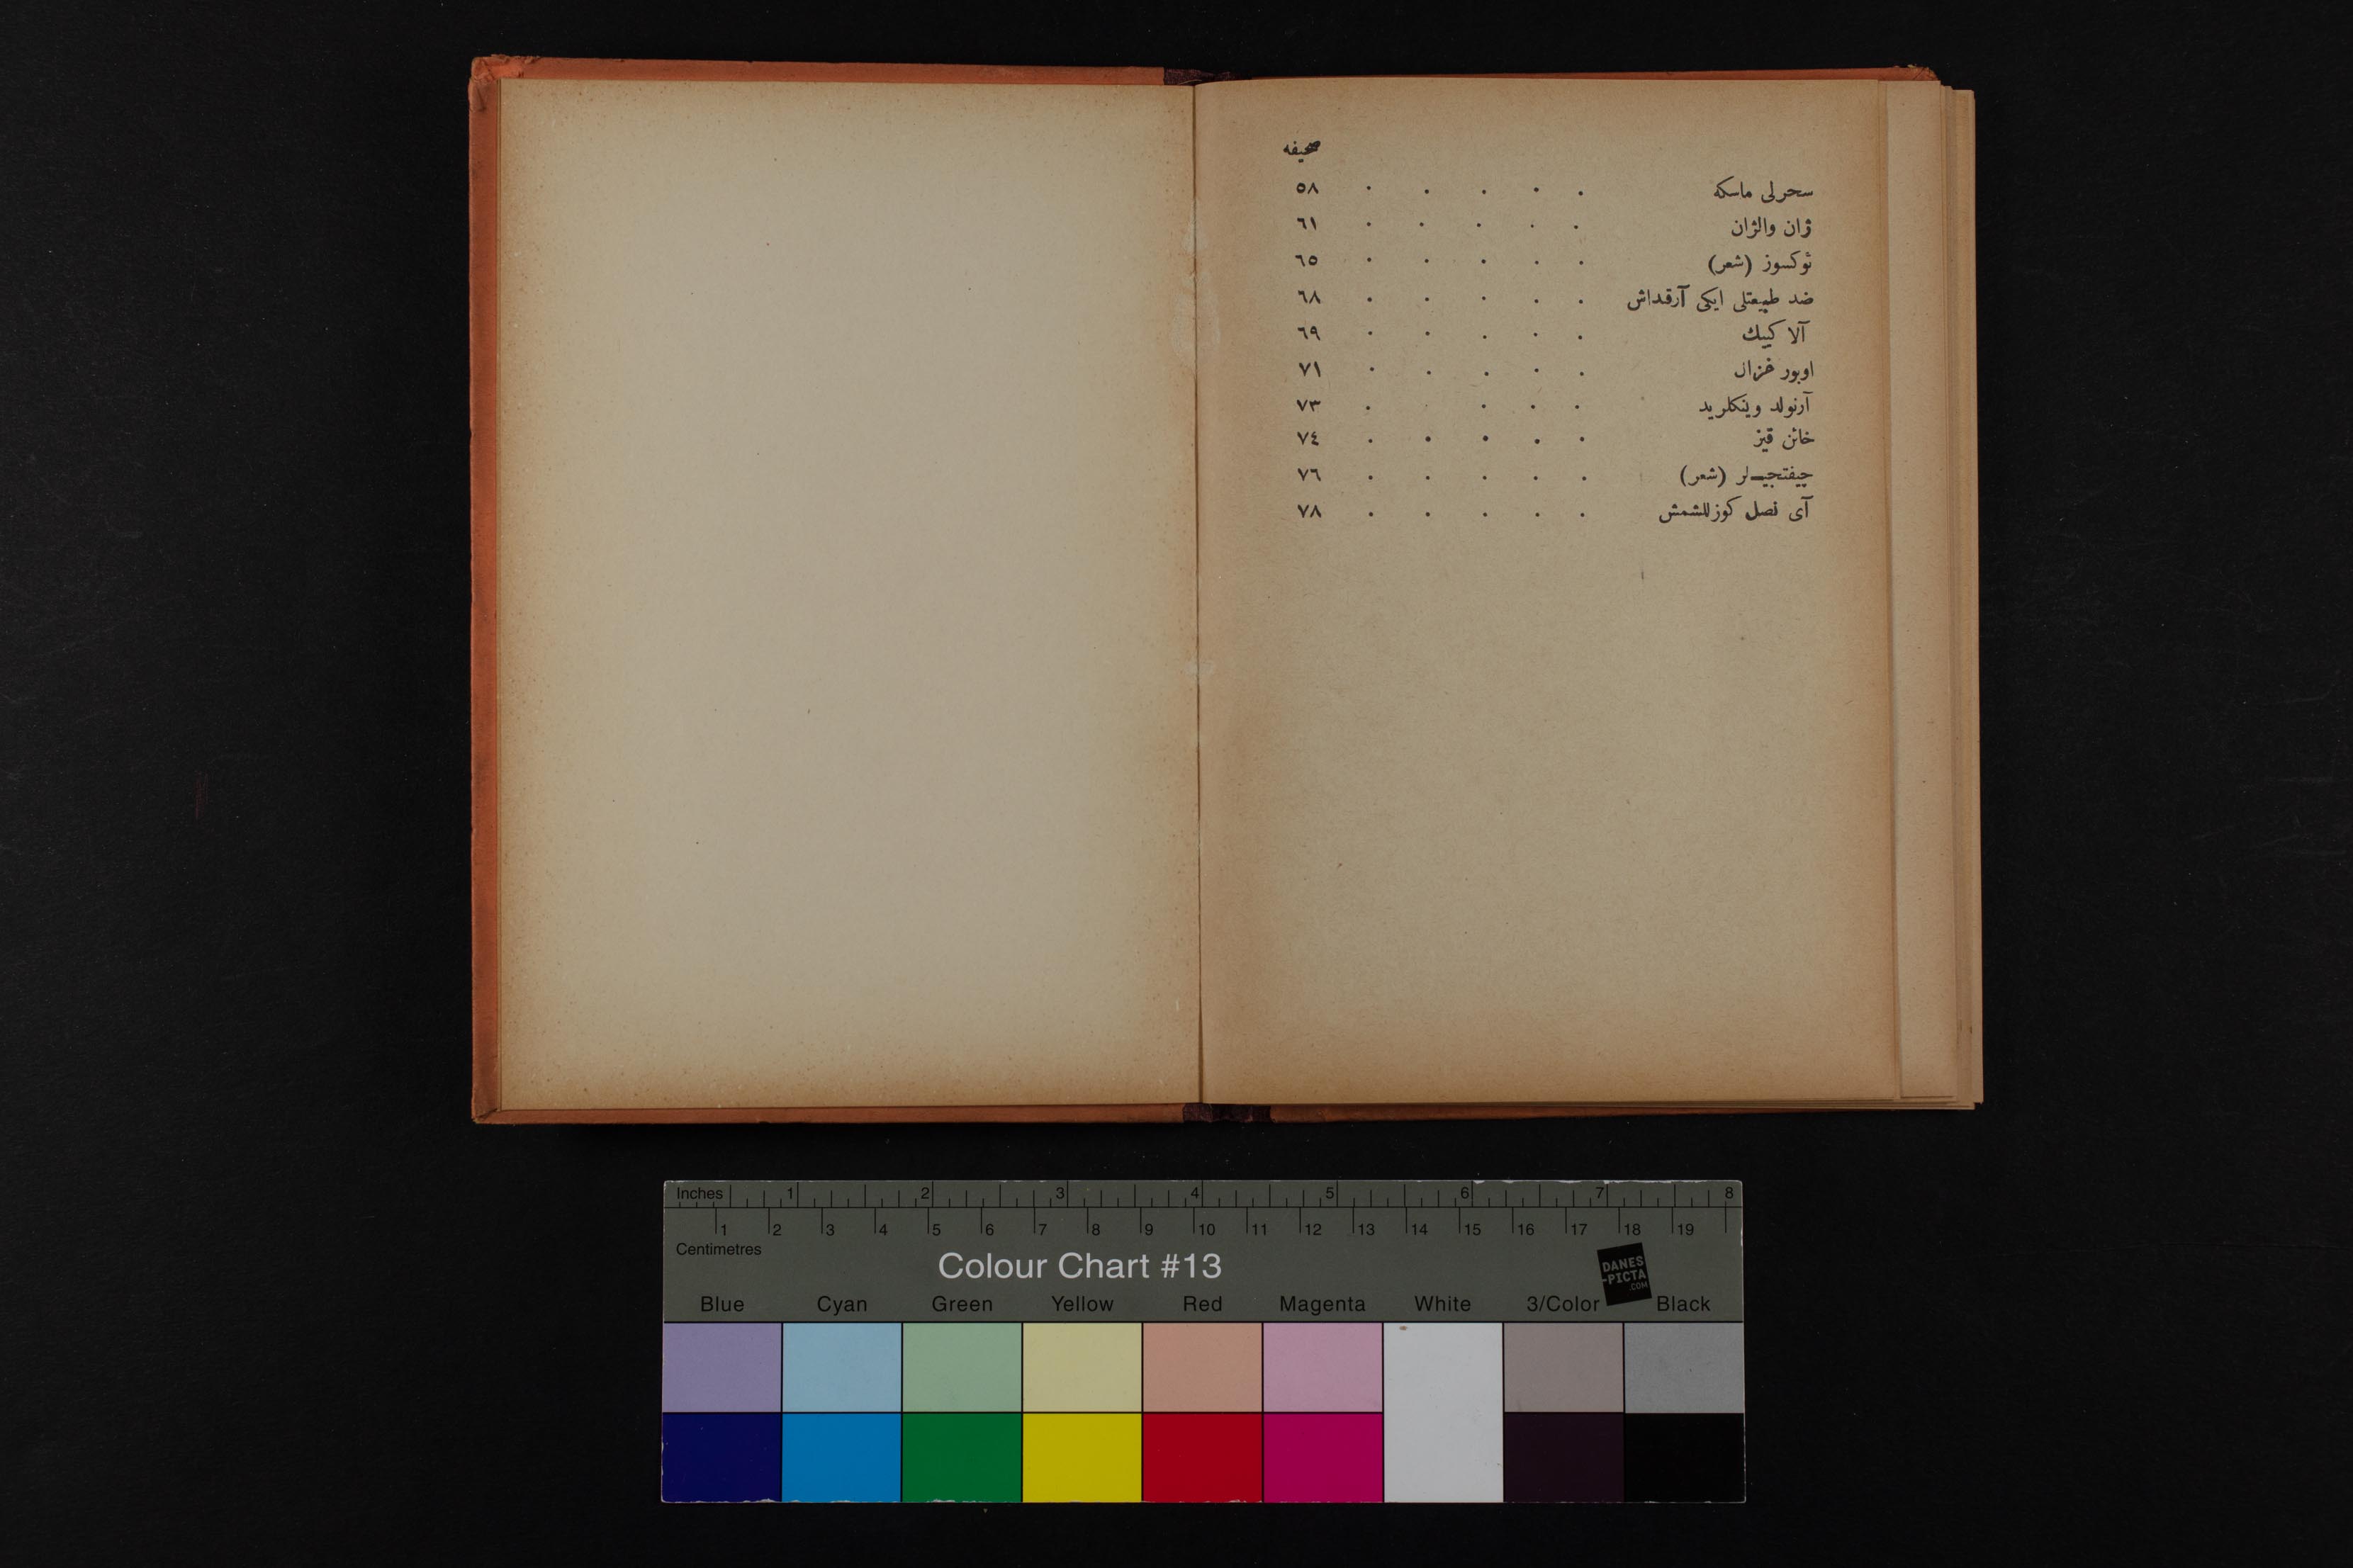 صحيفه
سحرلی ماسكه . . . . . ٥٨
ژان والژان . . . . . ٦١
ئوكسوز (شعر) . . . . . ٦٥
ضد طبيعتلی ايكی آرقداش . . . . . ٦٨
آلا كييك . . . . . ٦٩
اوبور غزال . . . . . ٧١
آرنولد وينكلريد . . . . ٧٣
خائن قيز . . . . . ٧٤
چيفتجيـلر (شعر) . . . . . ٧٦
آی نصل كوزللشمش . . . . . ٧٨
Inches 1 2 3 4 5 6 7 8
1 2 3 4 5 6 7 8 9 10 11 12 13 14 15 16 17 18 19
Centimetres
Colour Chart #13
DANES
-PICTA
.COM
Blue Cyan Green Yellow Red Magenta White 3/Color Black